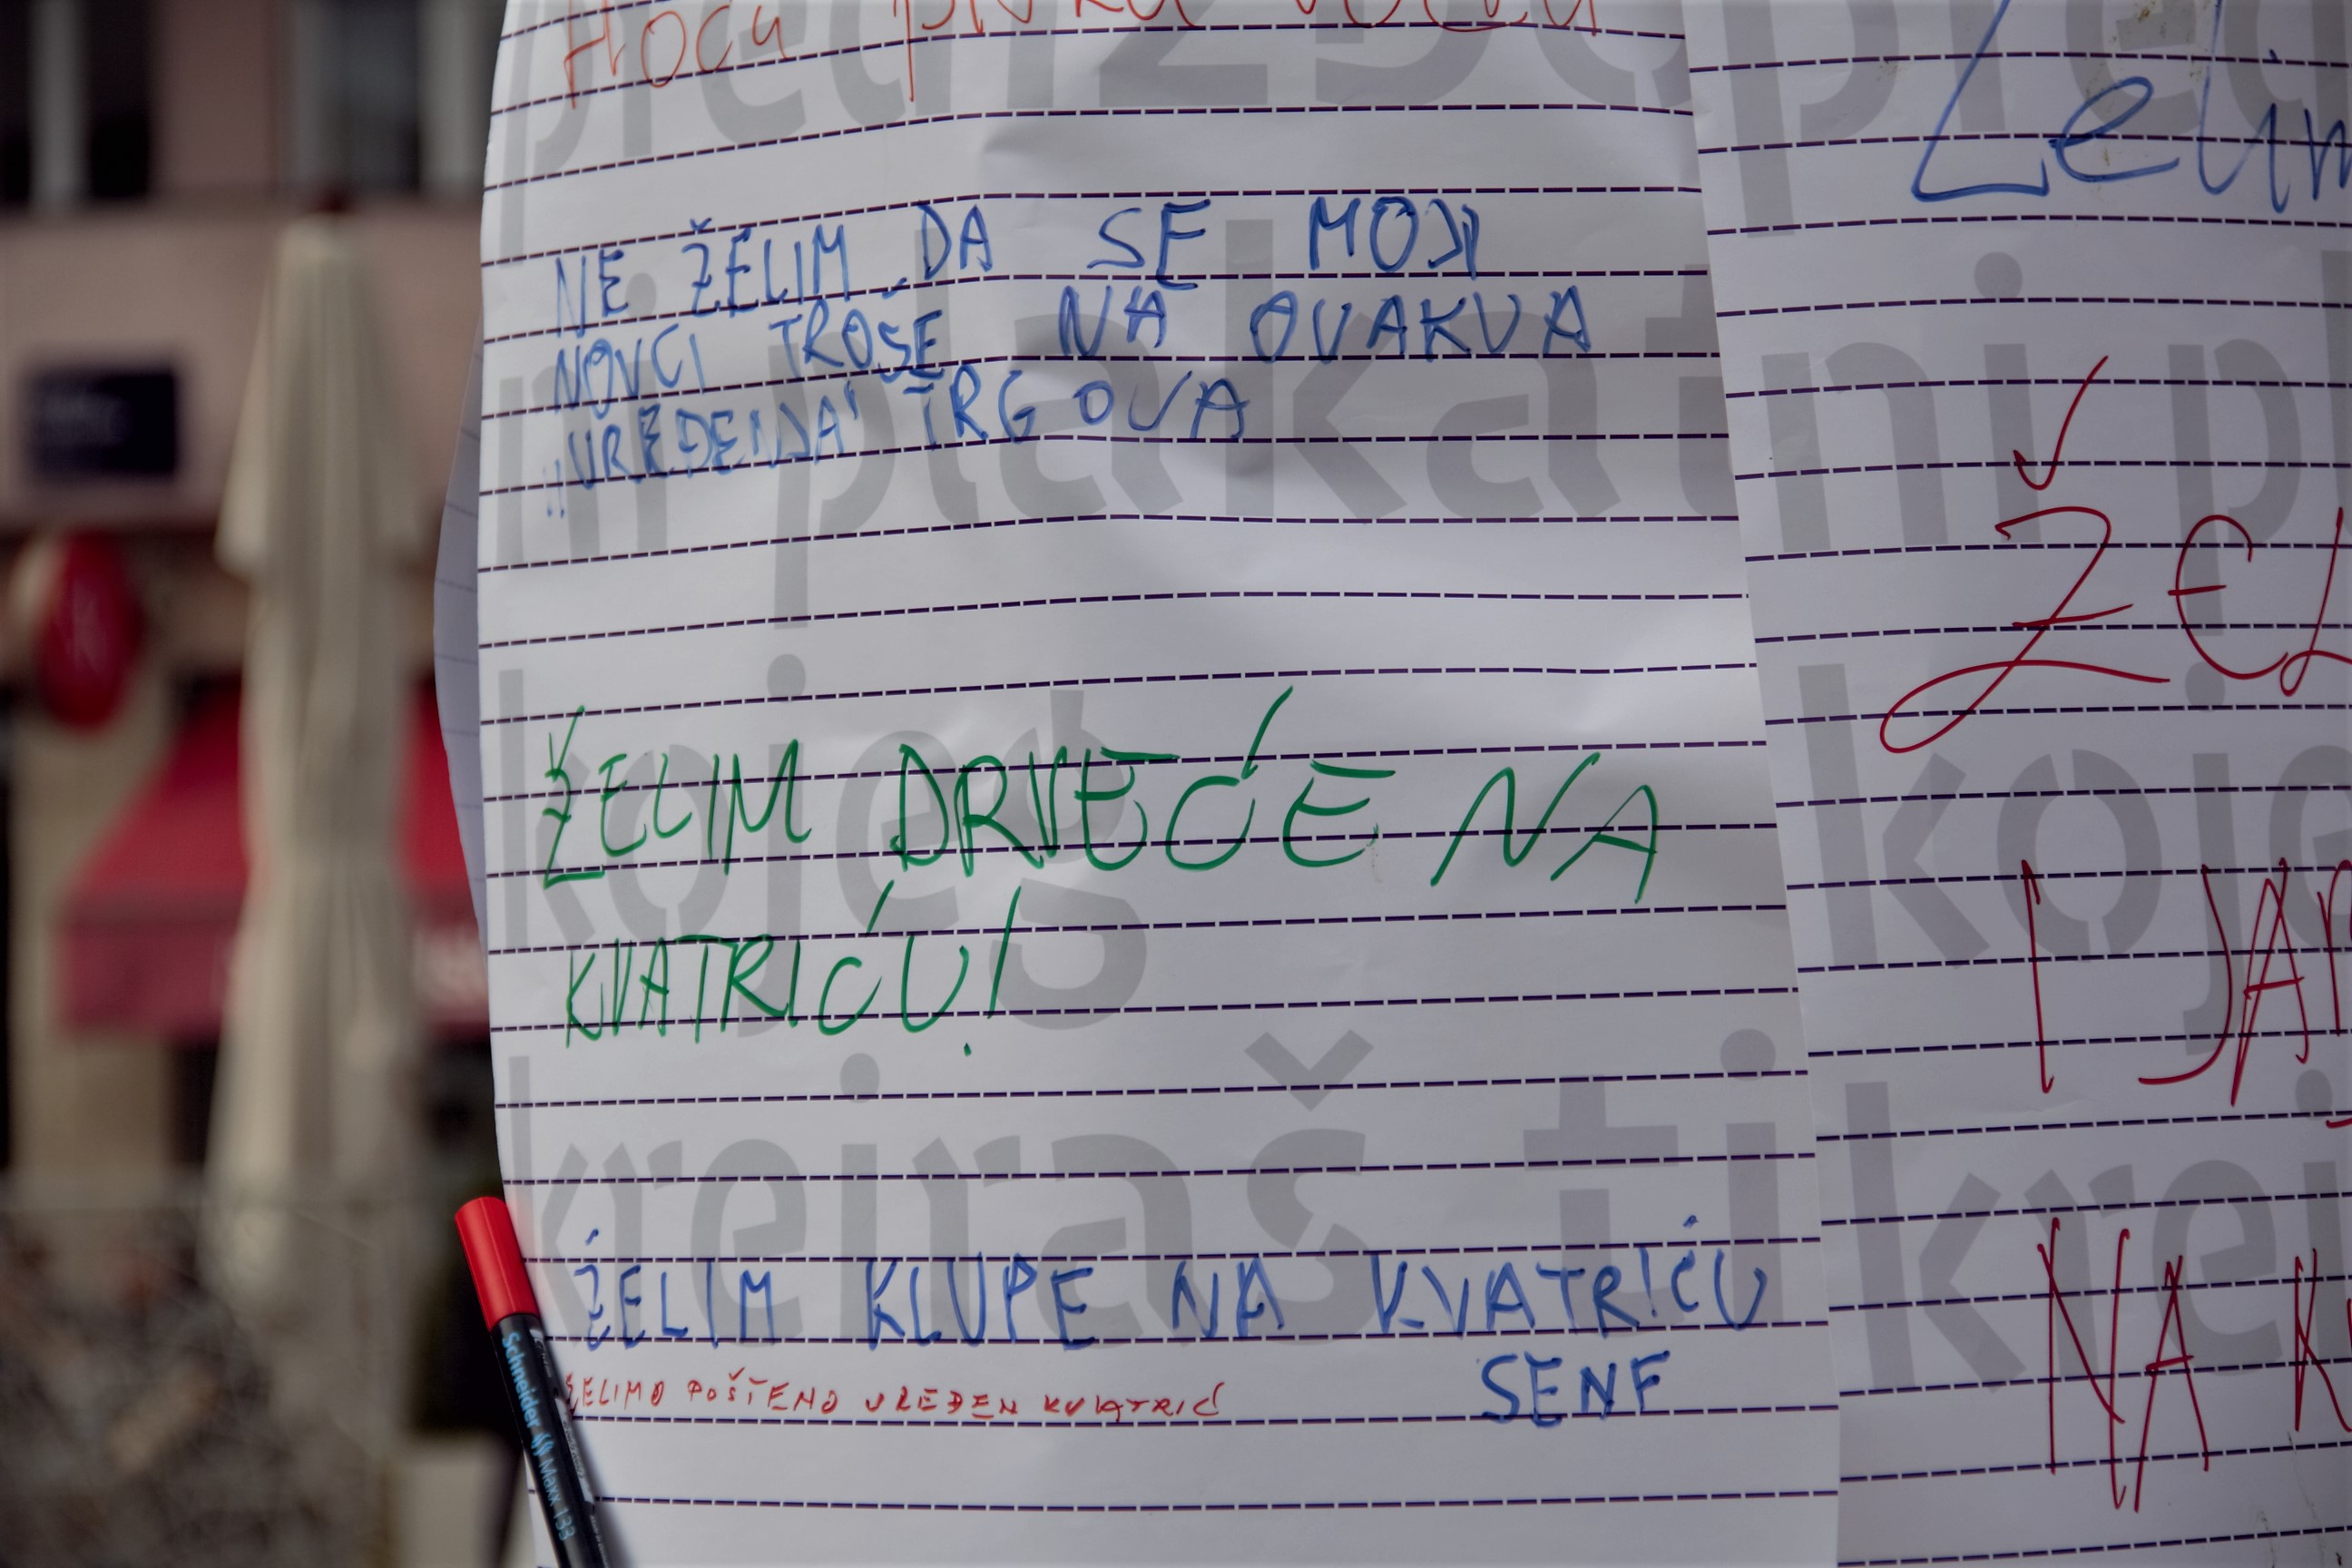 Hoću
NE ŽELIM DA SE MOJI
NOVCI TROŠE NA OVAKVA
„UREĐENJA" TRGOVA
ŽELIM DRVEĆE NA
KVATRIĆU!
ŽELIM KLUPE NA KVATRIĆU
SENF
ŽELIMO POŠTENO UREĐEN KVATRIĆ
Želim
ŽEL
I JA
NA K
plakatni pl
kojeg koje
kreiraš ti krei
Schneider Maxx 133